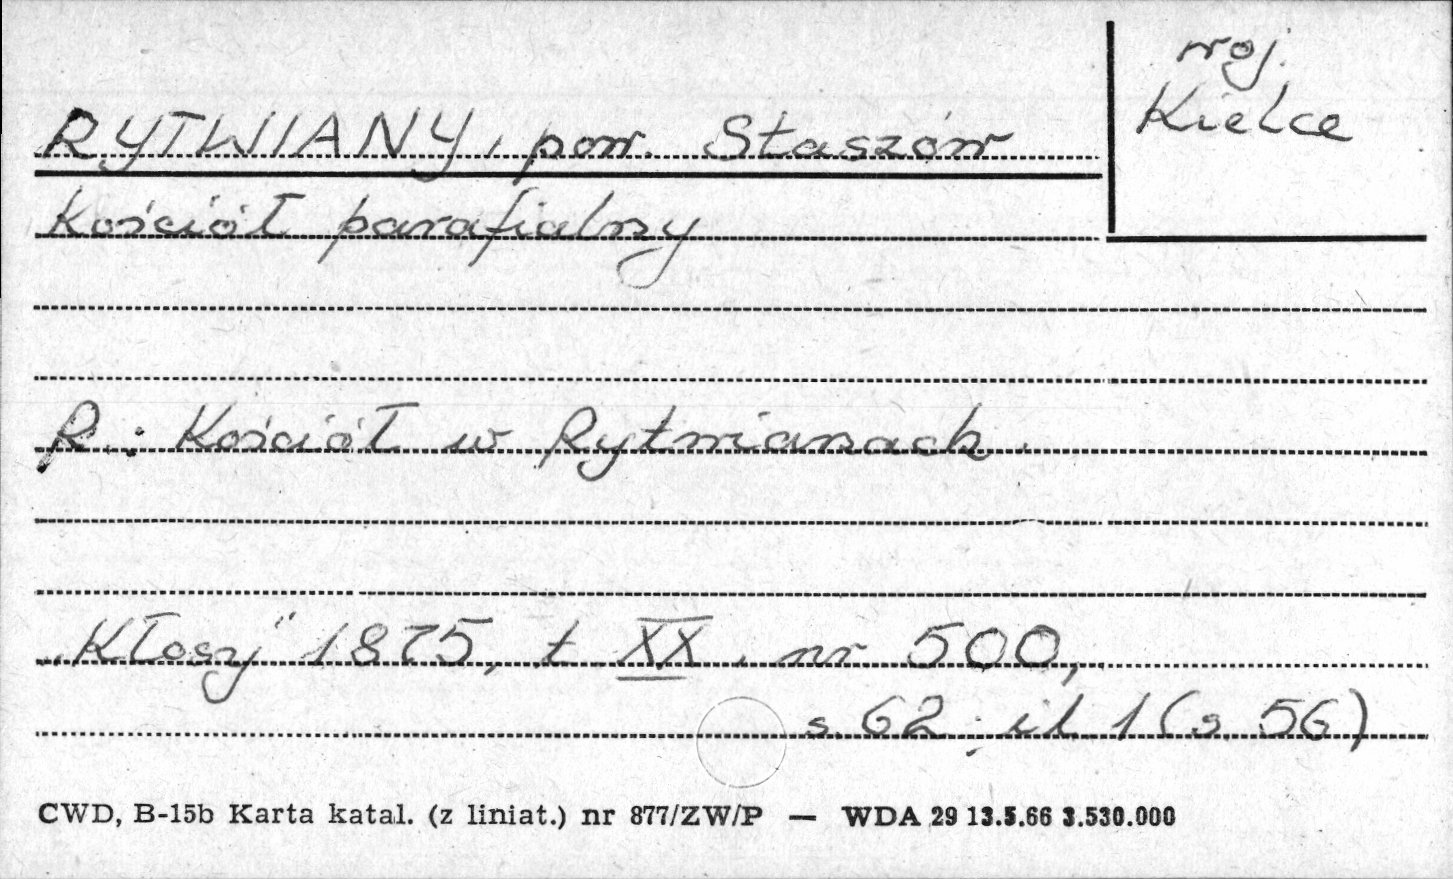 woj.
Kielce
RYTWIANY, pow. Staszów
Kościół parafialny
R.: Kościół w Rytwianach.
„Kłosy" 1875, t. XX, nr 500,
s. 62; il. 1 (s. 56)
CWD, B-15b Karta katal. (z liniat.) nr 877/ZW/P — WDA 29 13.5.66 3.530.000